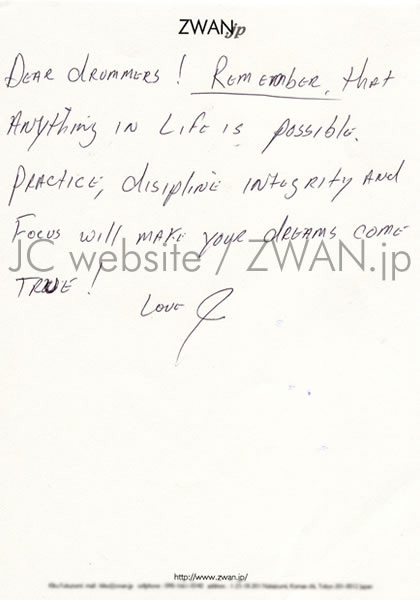 ZWAN.jp
DEAR DRUMMERS! REMEMBER, that
ANYthiNg iN LiFE is possiblE.
PRACTICE, disiplinE iNtEgRity ANd
Focus will MAKE your dREAMS COME
JC website / ZWAN.jp
TRUE!
LovE
http://www.zwan.jp/